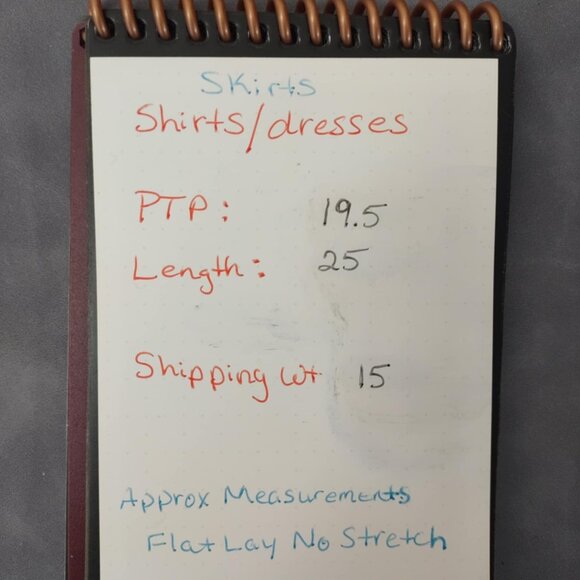 Skirts
Shirts/dresses
PTP: 19.5
Length: 25
Shipping wt 15
Approx Measurements
Flat Lay No Stretch